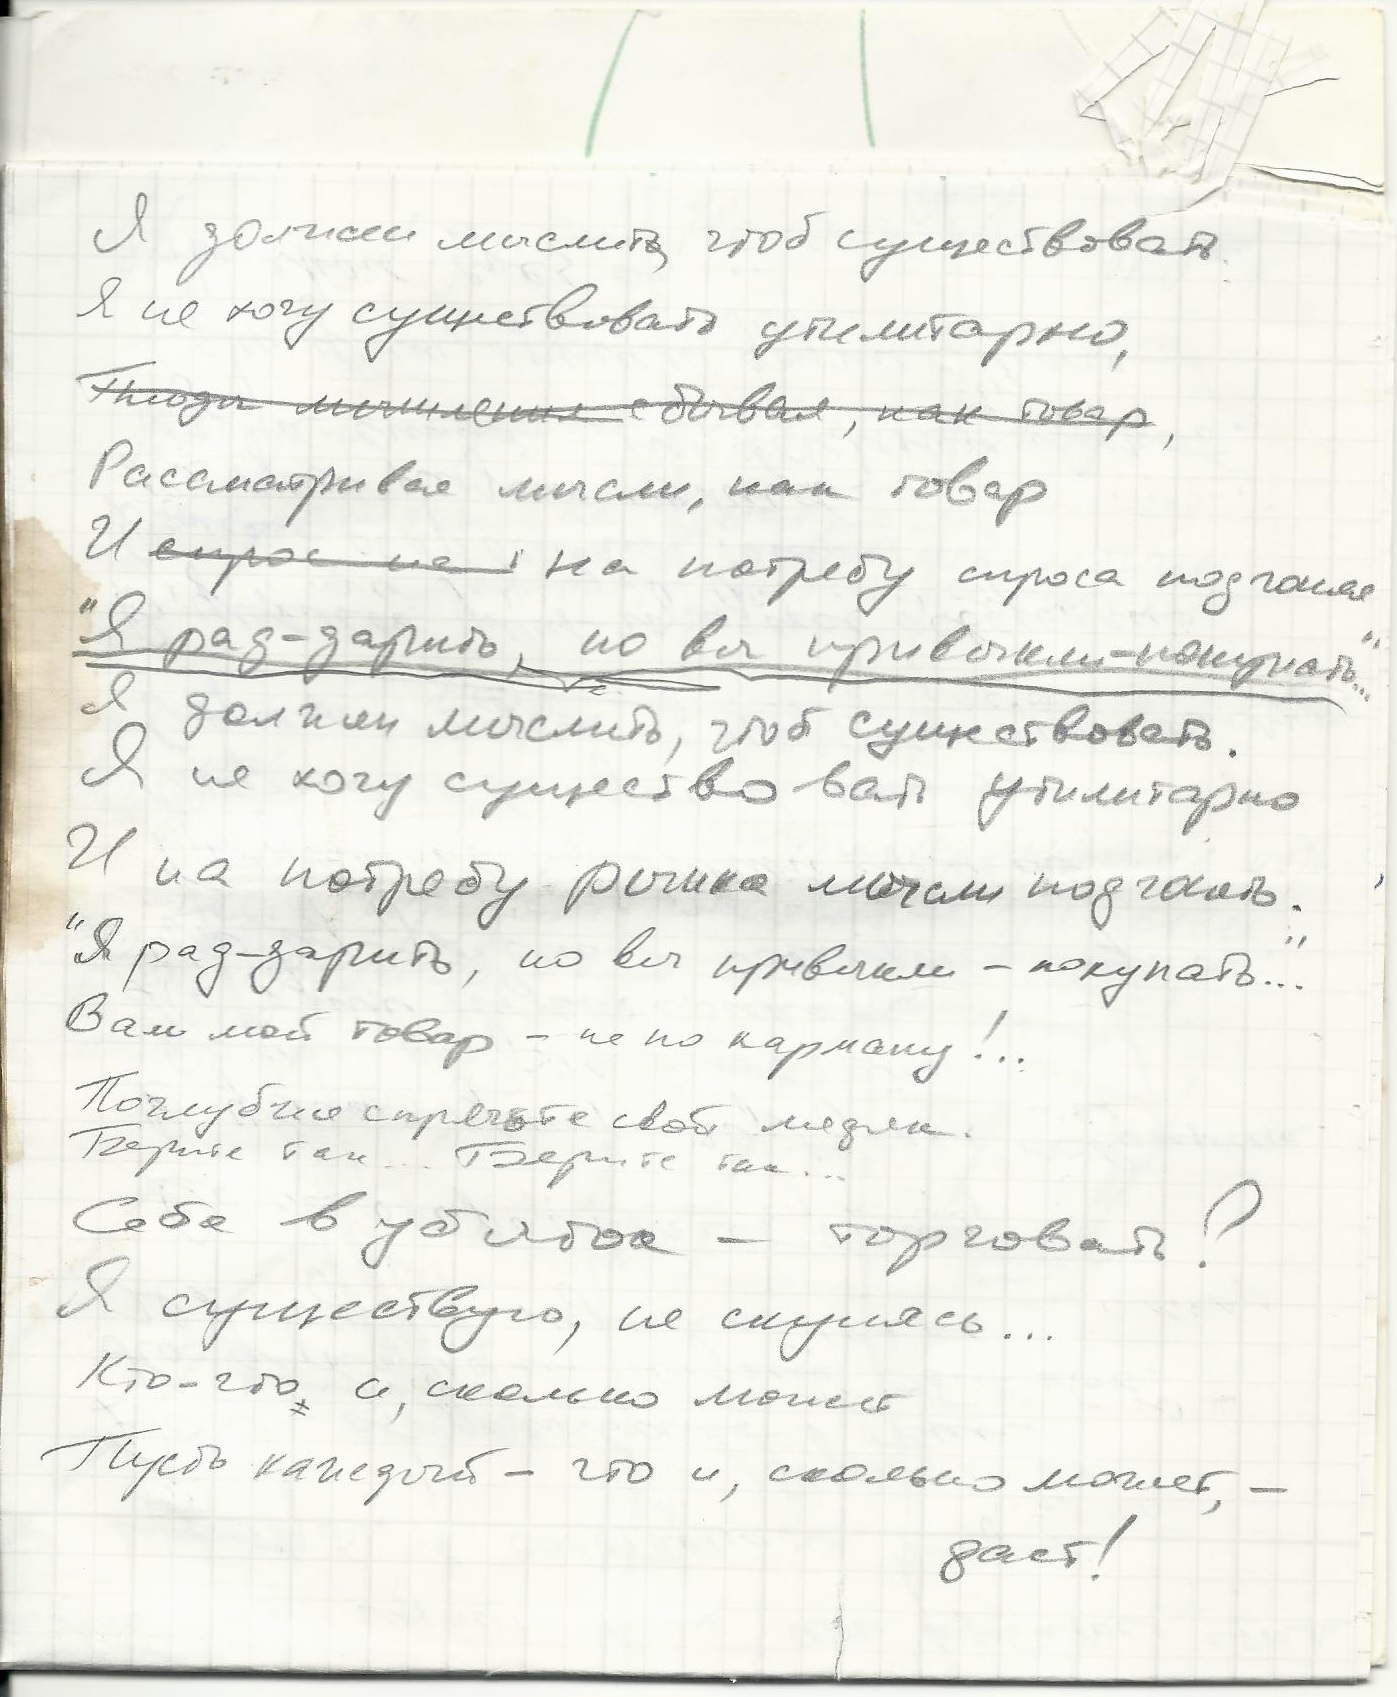 Я должен мыслить, чтоб существовать.
Я не хочу существовать утилитарно,
Плоды мышления сбывая, как товар,
Рассматривая мысли, как товар
И спрос на на потребу спроса подгоняя
"Я рад-дарить, но вы привыкли-покупать..."
Я должен мыслить, чтоб существовать.
Я не хочу существовать утилитарно
И на потребу рынка мысли подгонять.
"Я рад-дарить, но вы привыкли – покупать..."
Вам мой товар – не по карману!..
Поглубже спрячьте свой медяк.
Берите так... Берите так...
Себе в убыток – торговать?
Я существую, не скупясь...
Кто-что и, сколько может
Пусть каждый – что и, сколько может, –
даст!